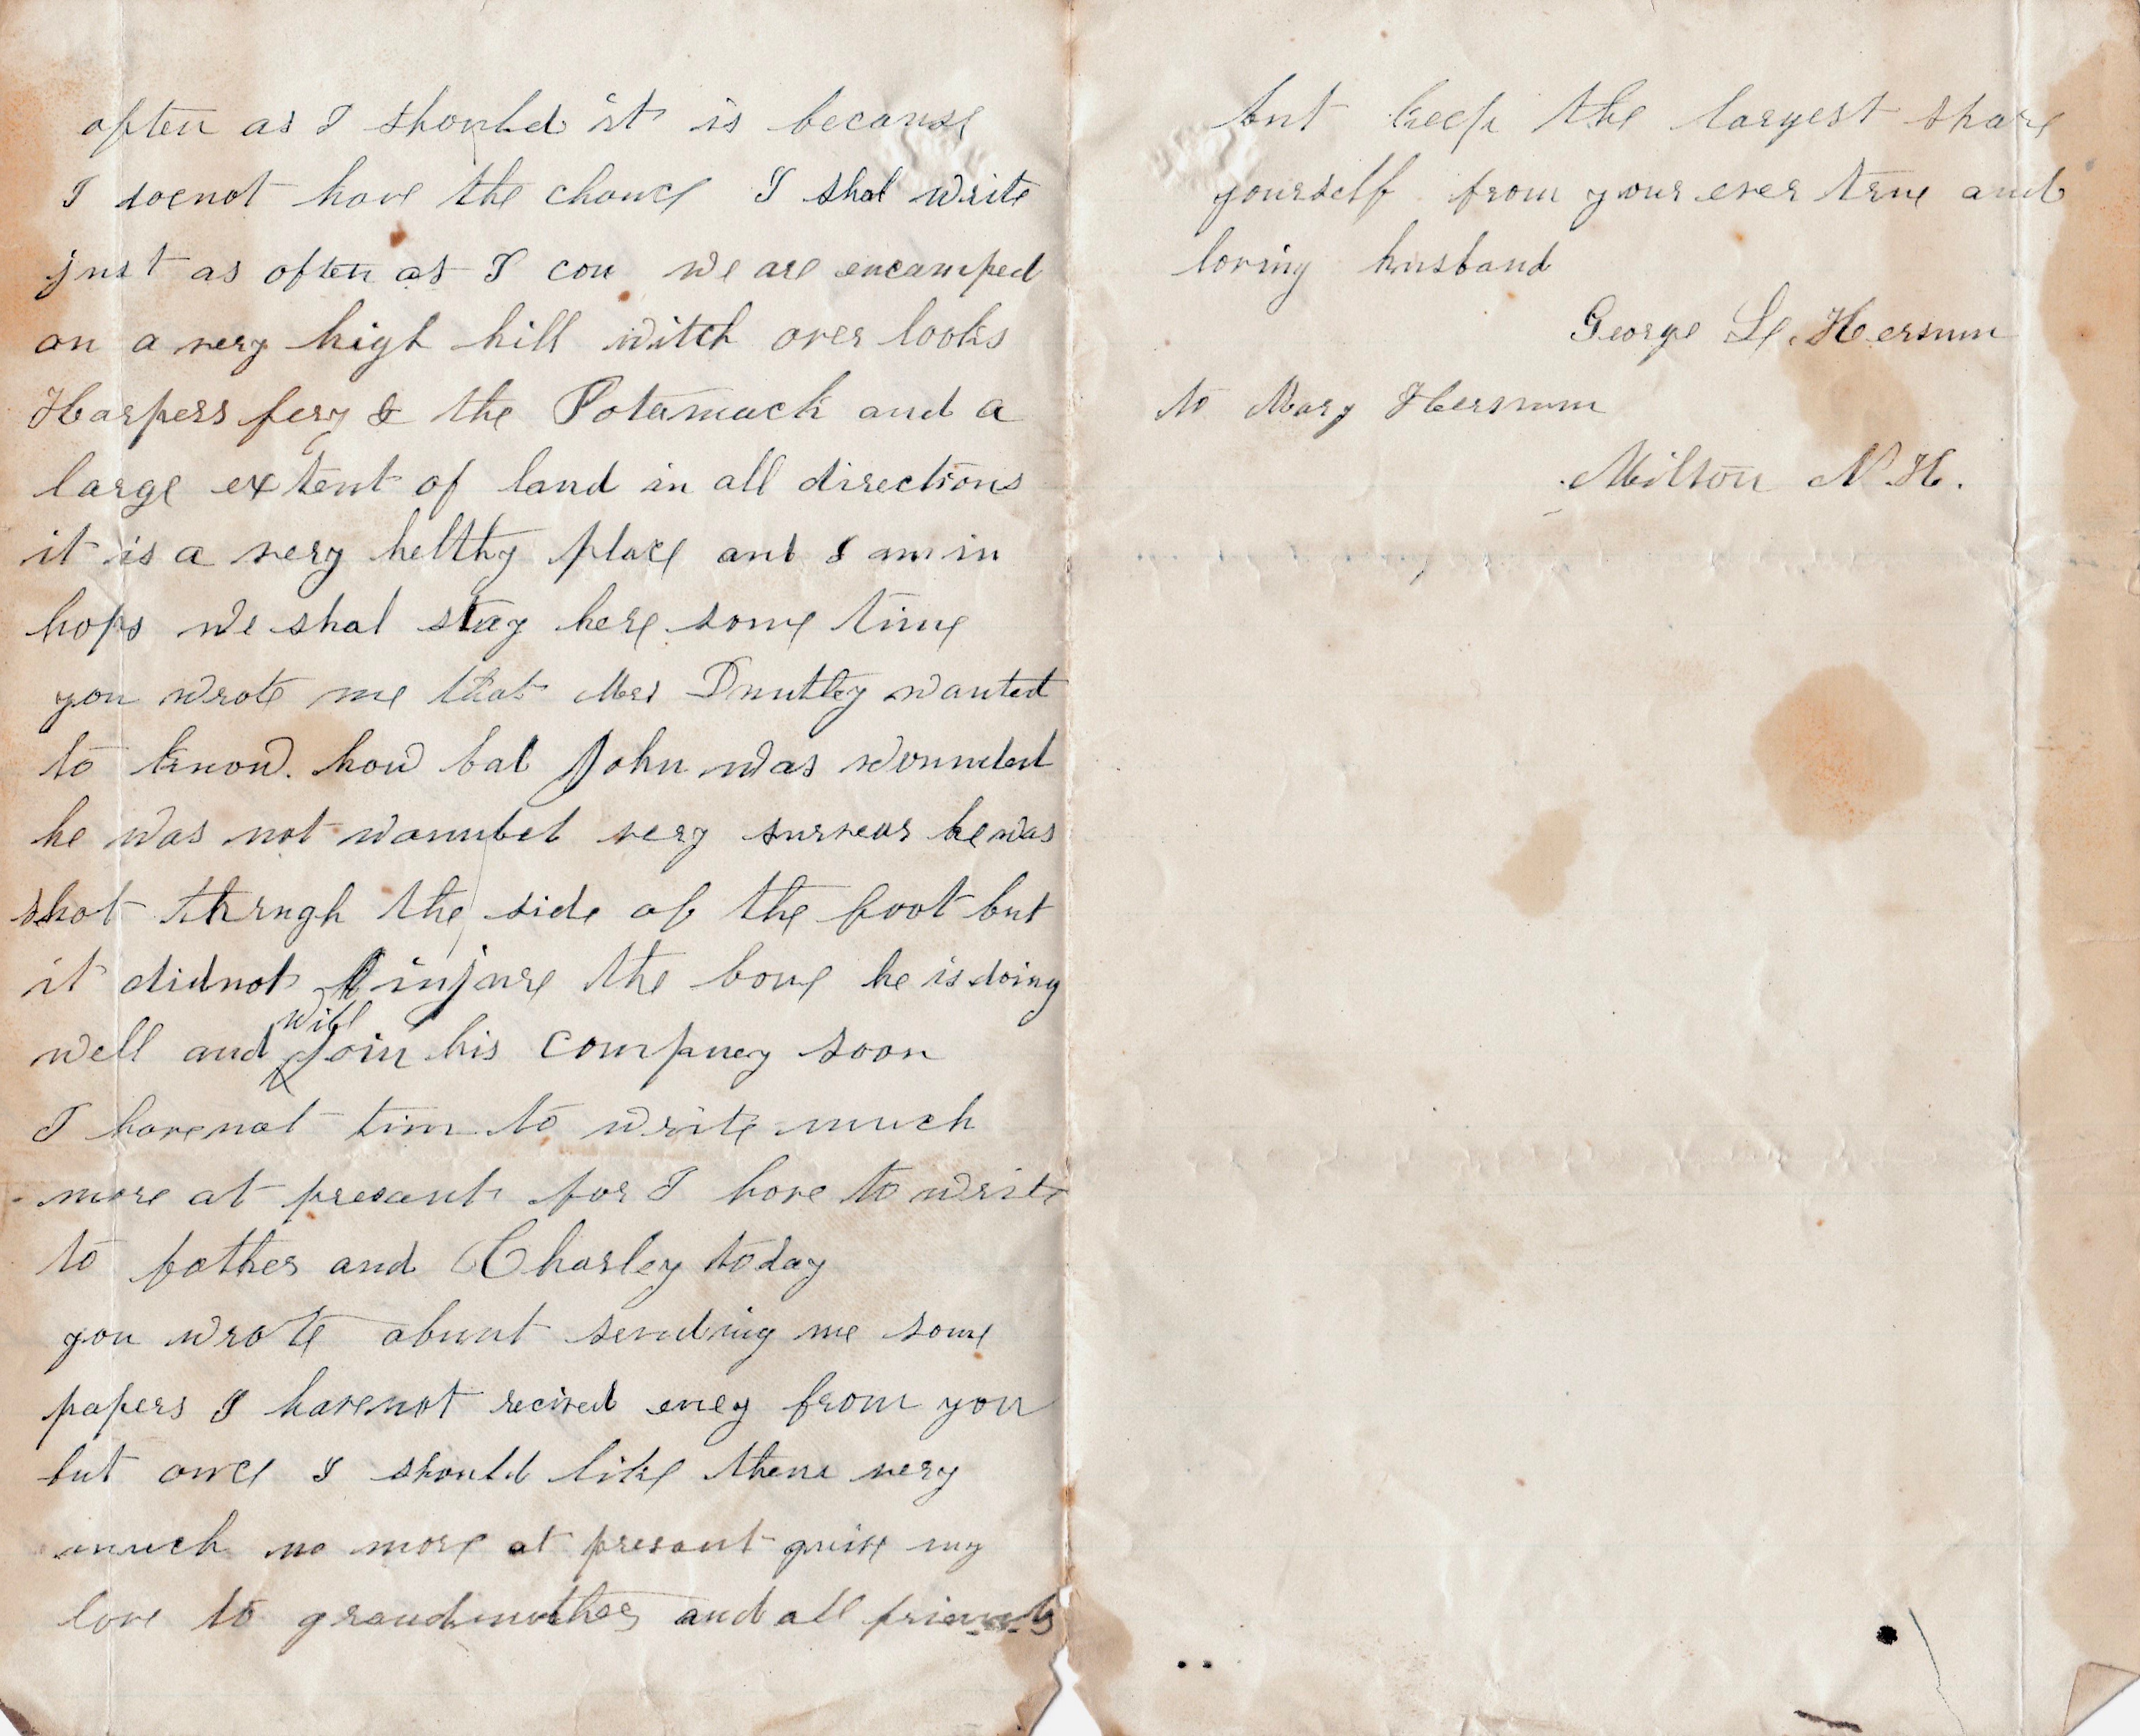 often as I should it is because
I doenot have the chance I shal write
just as often as I can we are encamped
on a very high hill witch over looks
Harpers fery & the Potamack and a
large extent of land in all directions
it is a very helthy place and I am in
hops we shal stay here some time
you wrote me that Mrs wanted
to know. how bad John was wounded
he was not wounded very he was
shot thrugh the side of the foot but
it didnot injure the bone he is doing
well and will join his compney soon
I havenot tim to write much
more at presant for I have to write
to father and Charley today
you wrote about sending me some
papers I havenot recived eney from you
but once I should like them very
much no more at presant guive my
love to grandmother and all friends
but keep the largest share
yourself from your ever true and
loving husband
George Hersum
to Mary Hersum
Milton N.H.